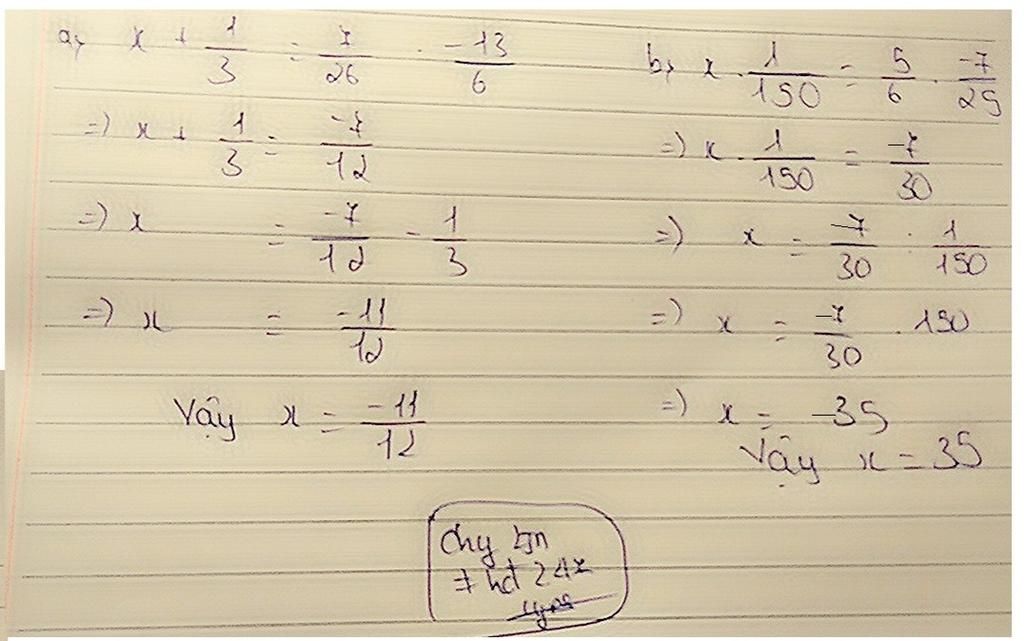 a, x + 1/3 = 7/26 . -13/6
=) x + 1/3 = -7/12
=) x = -7/12 - 1/3
=) x = -11/12
Vậy x = -11/12
b, x . 1/150 = 5/6 . -7/25
=) x . 1/150 = -7/30
=) x = -7/30 : 1/150
=) x = -7/30 . 150
=) x = -35
Vậy x = 35
hd 247